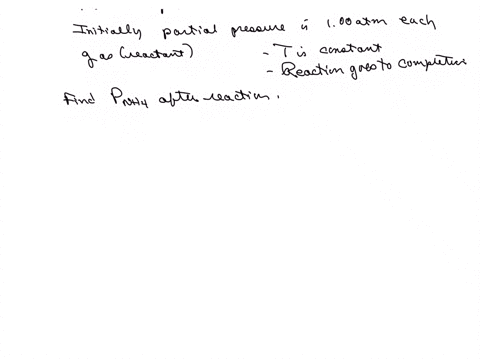 Initially partial pressure is 1.00 atm each
gas (reactant) - T is constant
- Reaction goes to completion
Find PNH4 after reaction.